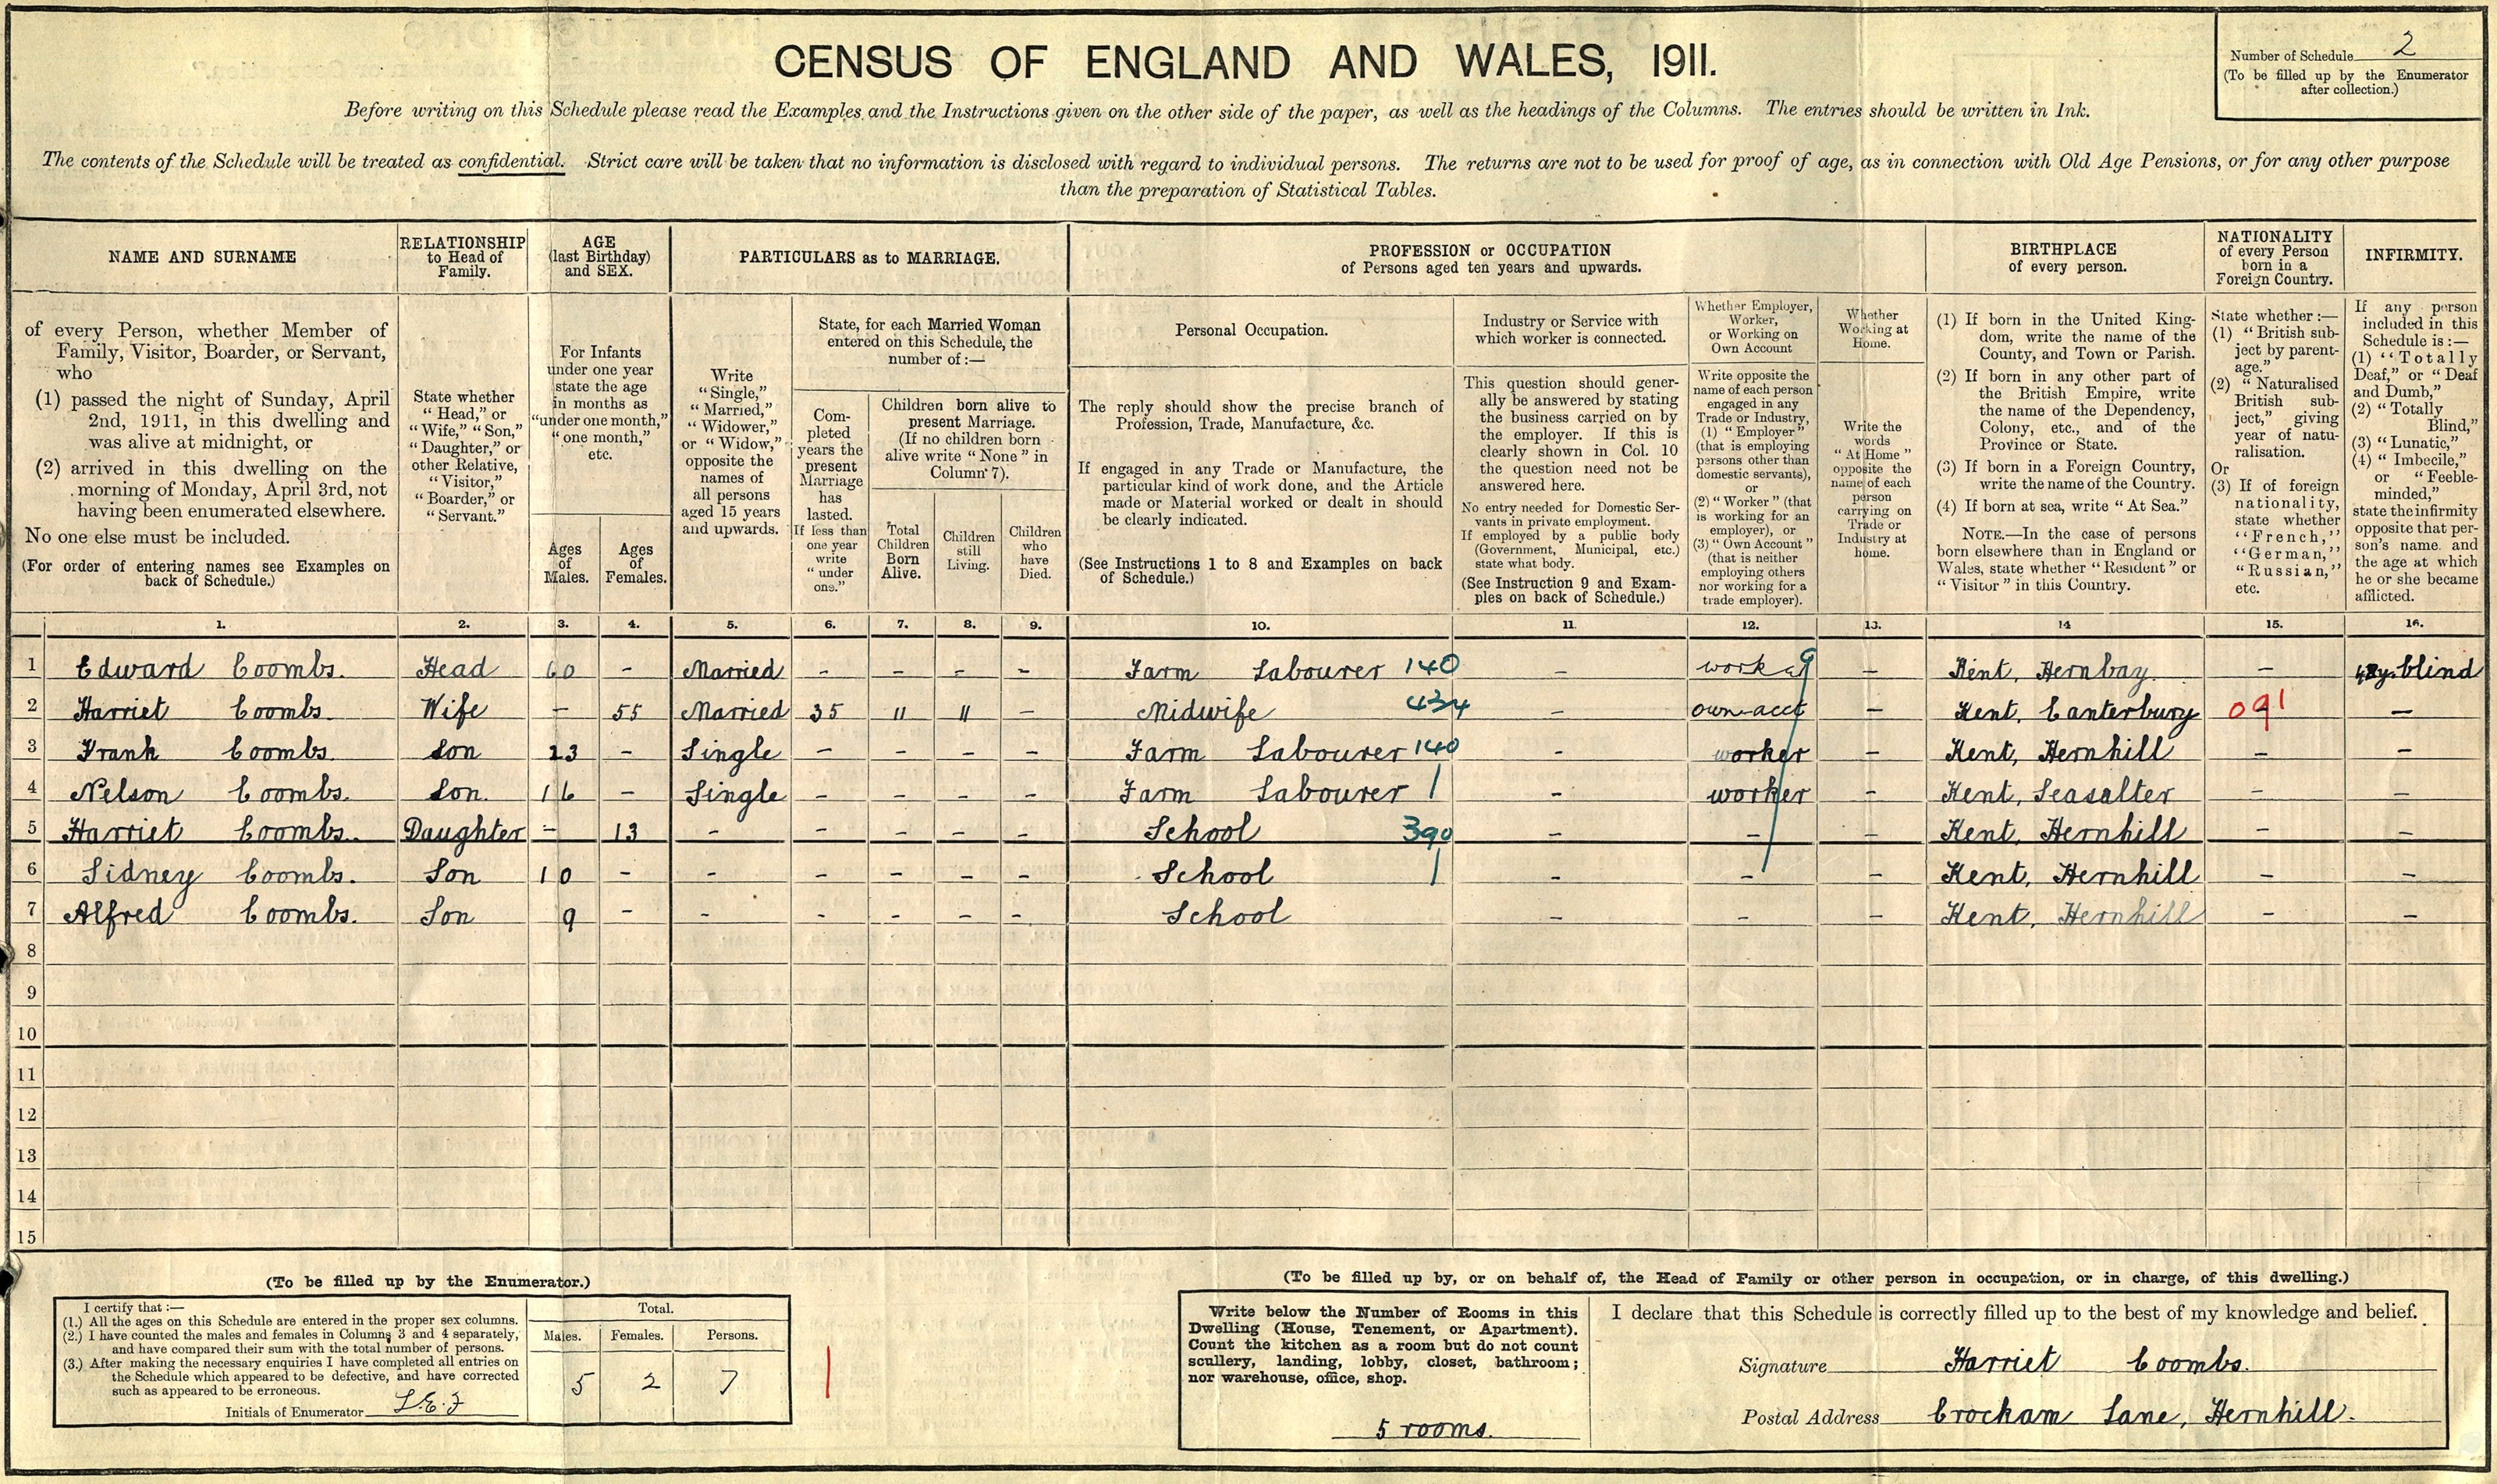 CENSUS OF ENGLAND AND WALES, 1911.
Number of Schedule 2
(To be filled up by the Enumerator
after collection.)
Before writing on this Schedule please read the Examples and the Instructions given on the other side of the paper, as well as the headings of the Columns. The entries should be written in Ink.
The contents of the Schedule will be treated as confidential. Strict care will be taken that no information is disclosed with regard to individual persons. The returns are not to be used for proof of age, as in connection with Old Age Pensions, or for any other purpose
than the preparation of Statistical Tables.
NAME AND SURNAME
of every Person, whether Member of
Family, Visitor, Boarder, or Servant,
who
(1) passed the night of Sunday, April
2nd, 1911, in this dwelling and
was alive at midnight, or
(2) arrived in this dwelling on the
morning of Monday, April 3rd, not
having been enumerated elsewhere.
No one else must be included.
(For order of entering names see Examples on
back of Schedule.)
RELATIONSHIP
to Head of
Family.
State whether
"Head," or
"Wife," "Son,"
"Daughter," or
other Relative,
"Visitor,"
"Boarder," or
"Servant."
AGE
(last Birthday)
and SEX.
For Infants
under one year
state the age
in months as
"under one month,"
"one month,"
etc.
Ages
of
Males.
Ages
of
Females.
PARTICULARS as to MARRIAGE.
Write
"Single,"
"Married,"
"Widower,"
or "Widow,"
opposite the
names of
all persons
aged 15 years
and upwards.
State, for each Married Woman
entered on this Schedule, the
number of:—
Com-
pleted
years the
present
Marriage
has
lasted.
If less than
one year
write
"under
one."
Children born alive to
present Marriage.
(If no children born
alive write "None" in
Column 7).
Total
Children
Born
Alive.
Children
still
Living.
Children
who
have
Died.
PROFESSION or OCCUPATION
of Persons aged ten years and upwards.
Personal Occupation.
The reply should show the precise branch of
Profession, Trade, Manufacture, &c.
If engaged in any Trade or Manufacture, the
particular kind of work done, and the Article
made or Material worked or dealt in should
be clearly indicated.
(See Instructions 1 to 8 and Examples on back
of Schedule.)
Industry or Service with
which worker is connected.
This question should gener-
ally be answered by stating
the business carried on by
the employer. If this is
clearly shown in Col. 10
the question need not be
answered here.
No entry needed for Domestic Ser-
vants in private employment.
If employed by a public body
(Government, Municipal, etc.)
state what body.
(See Instruction 9 and Exam-
ples on back of Schedule.)
Whether Employer,
Worker,
or Working on
Own Account
Write opposite the
name of each person
engaged in any
Trade or Industry,
(1) "Employer"
(that is employing
persons other than
domestic servants),
or
(2) "Worker" (that
is working for an
employer), or
(3) "Own Account"
(that is neither
employing others
nor working for a
trade employer).
Whether
Working at
Home.
Write the
words
"At Home"
opposite the
name of each
person
carrying on
Trade or
Industry at
home.
BIRTHPLACE
of every person.
(1) If born in the United King-
dom, write the name of the
County, and Town or Parish.
(2) If born in any other part of
the British Empire, write
the name of the Dependency,
Colony, etc., and of the
Province or State.
(3) If born in a Foreign Country,
write the name of the Country.
(4) If born at sea, write "At Sea."
NOTE.—In the case of persons
born elsewhere than in England or
Wales, state whether "Resident" or
"Visitor" in this Country.
NATIONALITY
of every Person
born in a
Foreign Country.
State whether:—
(1) "British sub-
ject by parent-
age."
(2) "Naturalised
British sub-
ject," giving
year of natu-
ralisation.
Or
(3) If of foreign
nationality,
state whether
"French,"
"German,"
"Russian,"
etc.
INFIRMITY.
If any person
included in this
Schedule is:—
(1) "Totally
Deaf," or "Deaf
and Dumb,"
(2) "Totally
Blind,"
(3) "Lunatic,"
(4) "Imbecile,"
or "Feeble-
minded,"
state the infirmity
opposite that per-
son's name, and
the age at which
he or she became
afflicted.
1. 2. 3. 4. 5. 6. 7. 8. 9. 10. 11. 12. 13. 14 15. 16.
1 Edward Coombs. Head 60 – Married – – – – Farm Labourer 140 – – Kent, Hernbay. – blind
2 Harriet Coombs. Wife – 55 Married 35 11 11 – Midwife 434 – own acct – Kent, Canterbury 091 –
3 Frank Coombs. Son 23 – Single – – – – Farm Labourer 140 – worker – Kent, Hernhill – –
4 Nelson Coombs. Son. 16 – Single – – – – Farm Labourer – worker – Kent, Seasalter – –
5 Harriet Coombs. Daughter – 13 – – – – – School 390 – – – Kent, Hernhill – –
6 Sidney Coombs. Son 10 – – – – – – School – – – Kent, Hernhill – –
7 Alfred Coombs. Son 9 – – – – – – School – – – Kent, Hernhill – –
8
9
10
11
12
13
14
15
(To be filled up by the Enumerator.)
I certify that:—
(1.) All the ages on this Schedule are entered in the proper sex columns.
(2.) I have counted the males and females in Columns 3 and 4 separately,
and have compared their sum with the total number of persons.
(3.) After making the necessary enquiries I have completed all entries on
the Schedule which appeared to be defective, and have corrected
such as appeared to be erroneous.
Initials of Enumerator
Total.
Males. Females. Persons.
5 2 7
(To be filled up by, or on behalf of, the Head of Family or other person in occupation, or in charge, of this dwelling.)
Write below the Number of Rooms in this
Dwelling (House, Tenement, or Apartment).
Count the kitchen as a room but do not count
scullery, landing, lobby, closet, bathroom;
nor warehouse, office, shop.
5 rooms.
I declare that this Schedule is correctly filled up to the best of my knowledge and belief.
Signature Harriet Coombs.
Postal Address Crockam Lane, Hernhill.